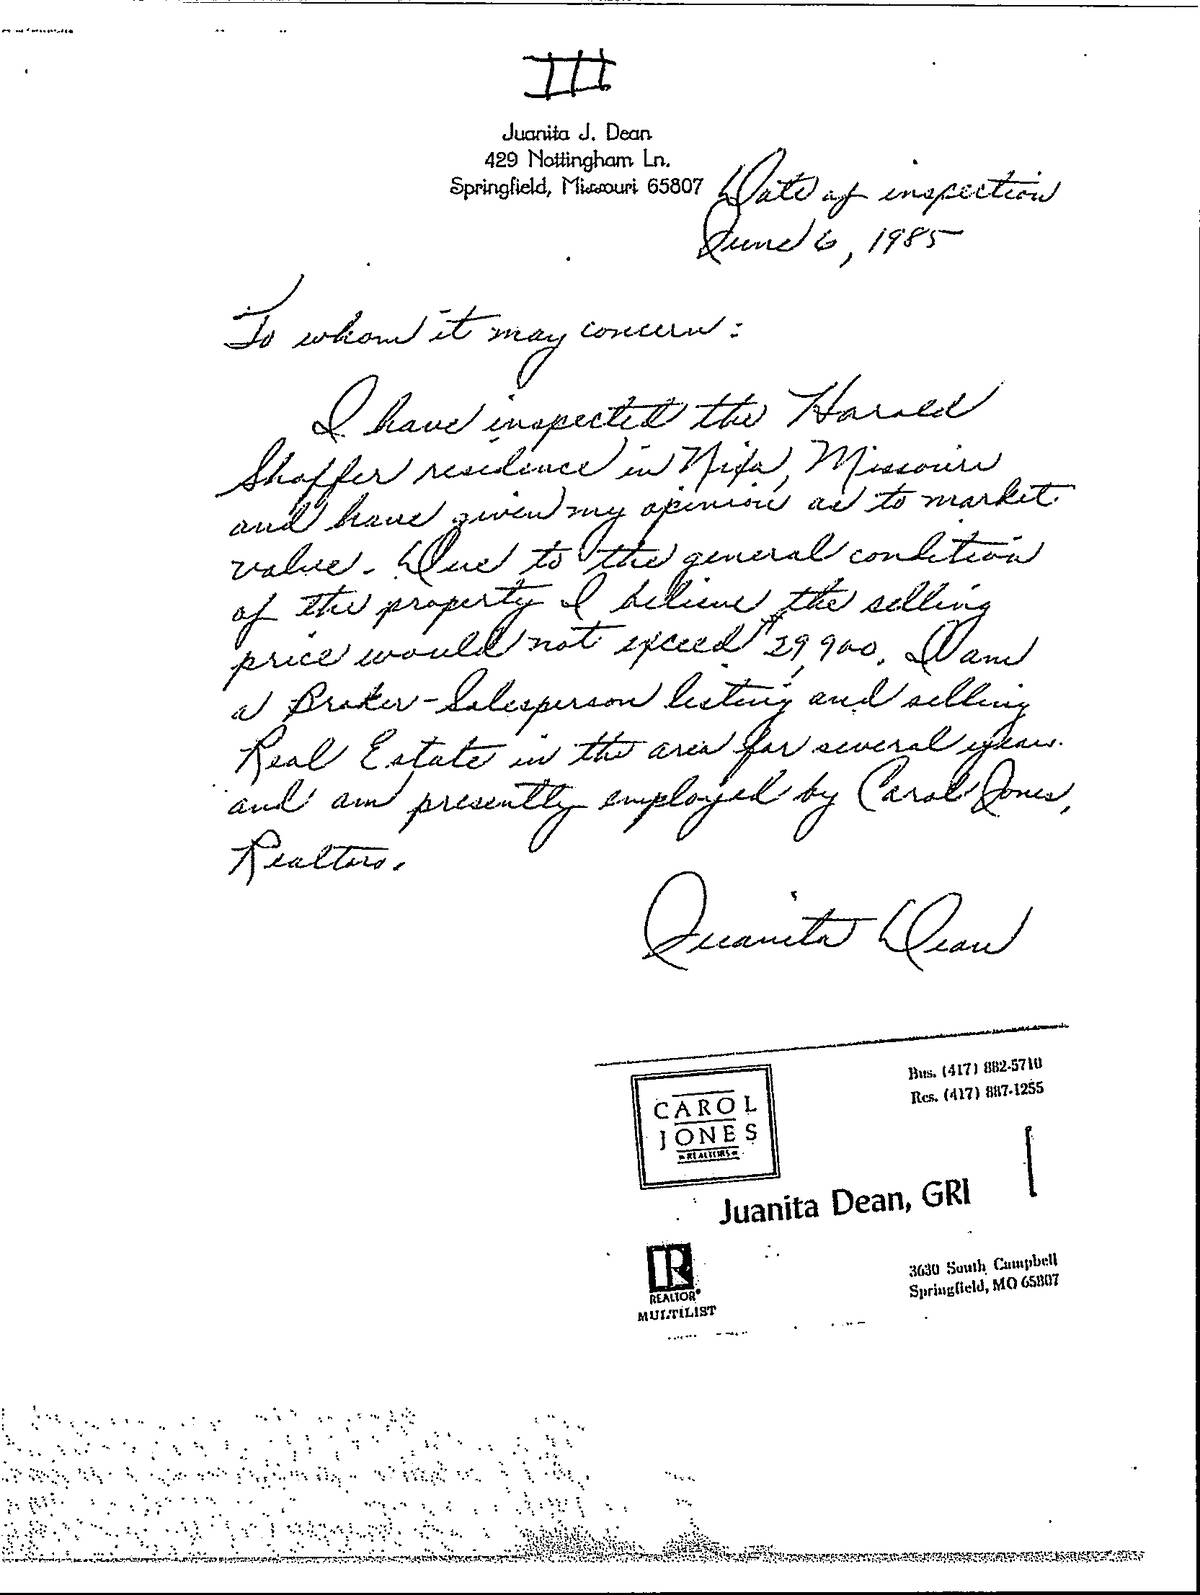 III
Juanita J. Dean
429 Nottingham Ln.
Springfield, Missouri 65807
Date of inspection
June 6, 1985
To whom it may concern:
I have inspected the Harold
Shaffer residence in Nixa, Missouri
and have given my opinion as to market
value. Due to the general condition
of the property I believe the selling
price would not exceed $29,900. I am
a Broker-Salesperson listing and selling
Real Estate in the area for several years
and am presently employed by Carol Jones,
Realtors.
Juanita Dean
Bus. (417) 882-5710
Res. (417) 887-1255
CAROL
JONES
REALTORS
Juanita Dean, GRI
R
REALTOR®
MULTILIST
3630 South Campbell
Springfield, MO 65807